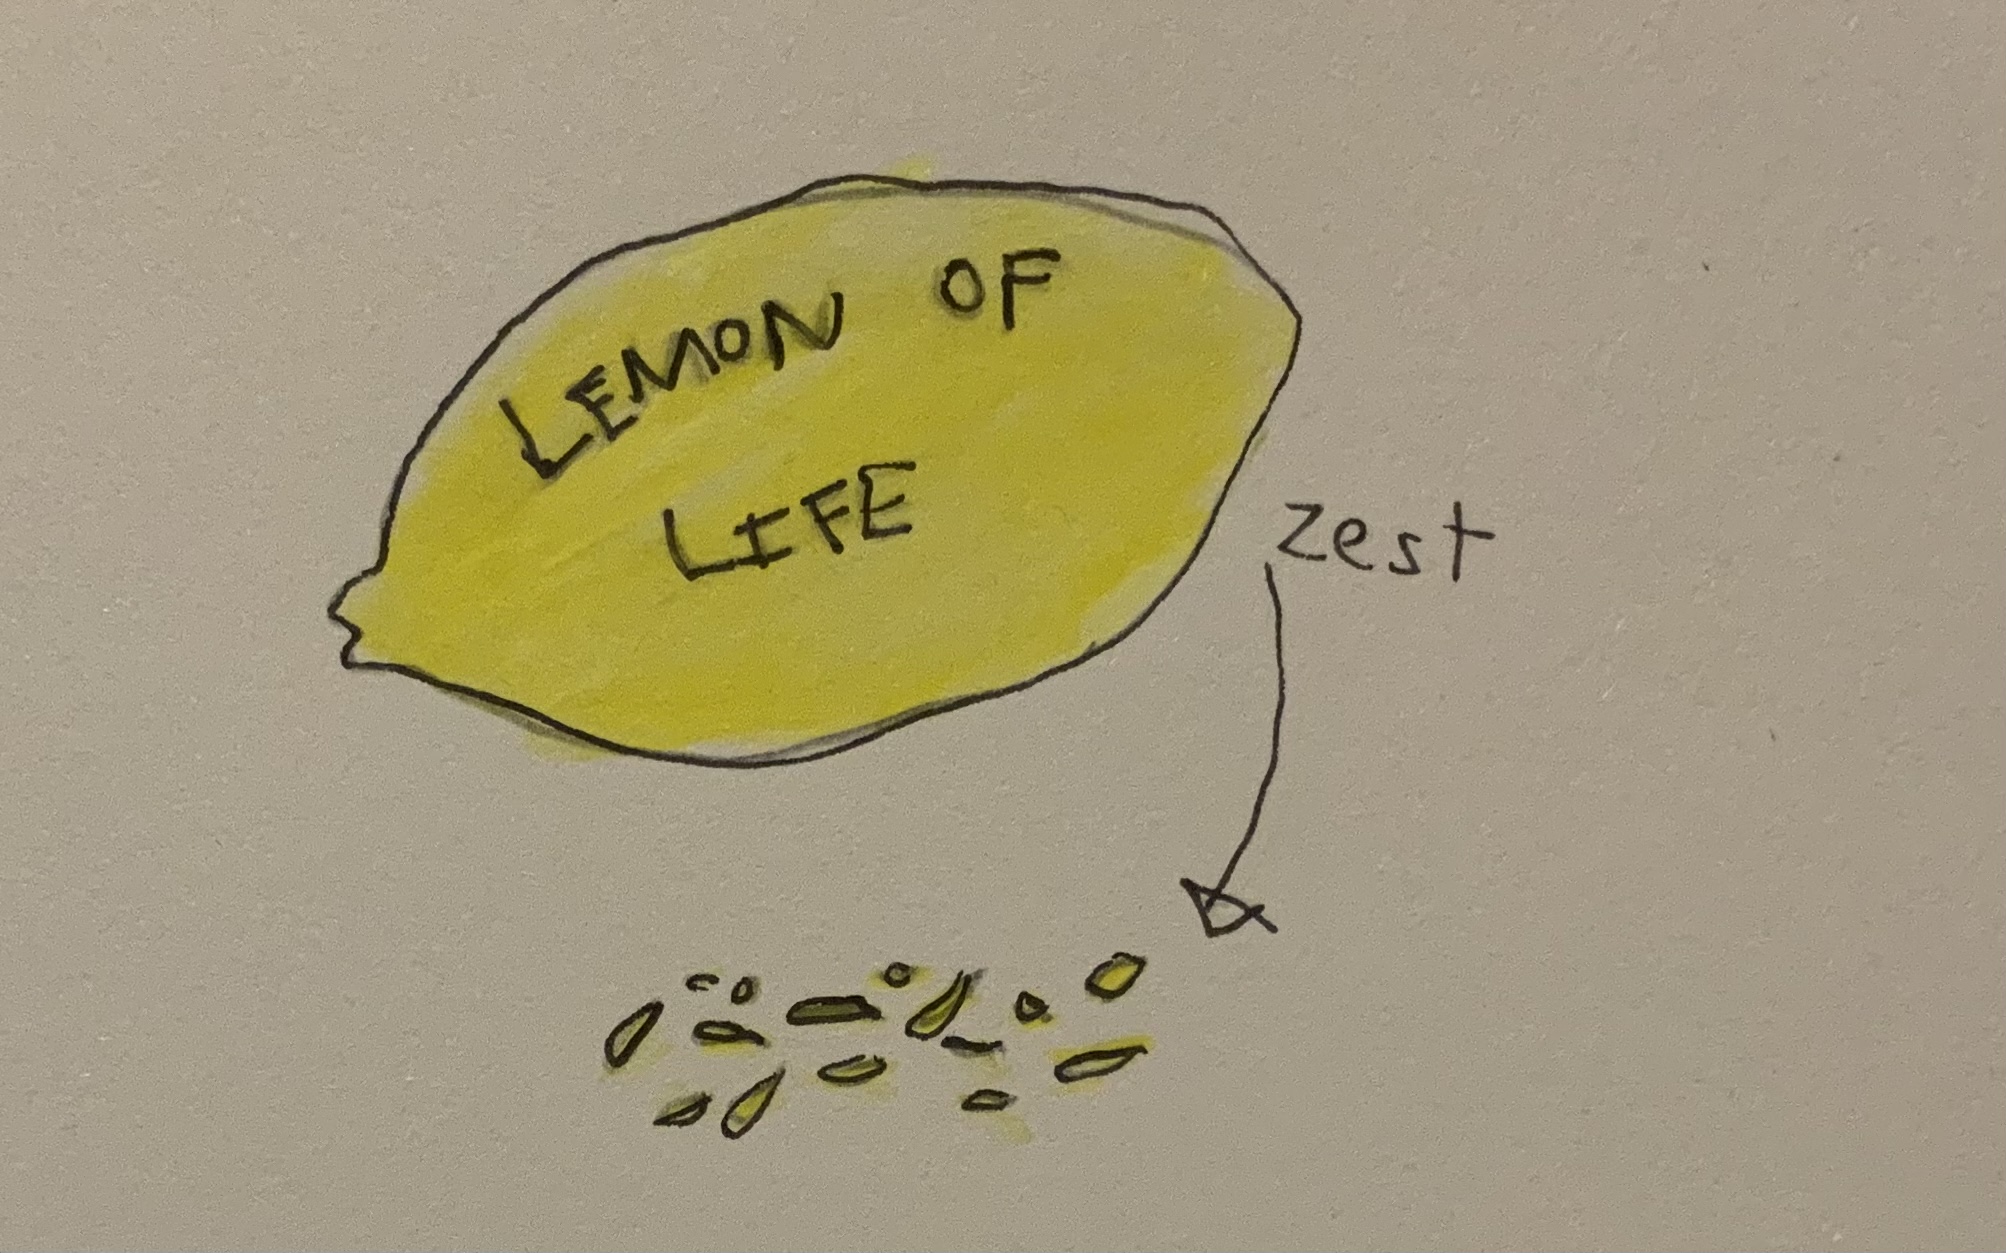 LEMON OF
LIFE
zest